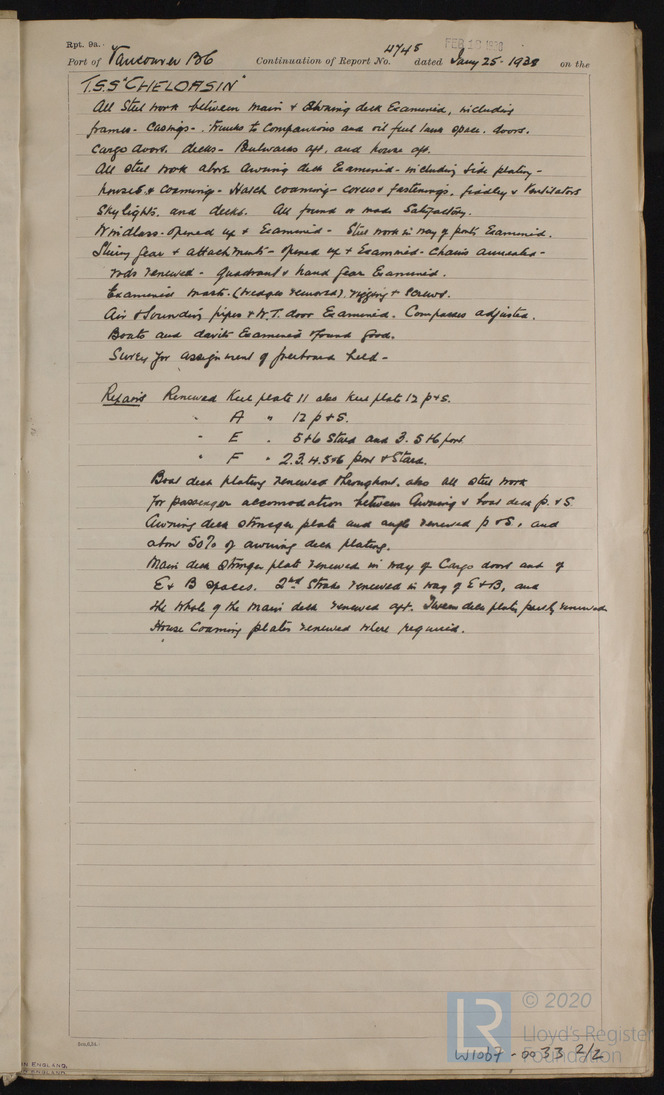 Rpt. 9a.
FEB 10 1938
Port of Vancouver BC Continuation of Report No. 4745 dated Jany 25 - 1938 on the
T.S.S "CHELOHSIN"
All Steel work between main & Awning deck Examined, including
frames - Casings - Trunks to Companions and oil fuel tank space. doors.
Cargo doors. decks - Bulwarks aft, and house aft.
All steel work above Awning deck Examined - including side plating -
houses & coaming - Hatch coaming - covers & fastenings. fiddley & Ventilators
Skylights. and decks. All found or made Satisfactory.
Windlass - opened up & Examined - Steel work in way of ports Examined.
Steering gear & attachments - opened up & Examined - Chains annealed -
rods renewed - quadrant & hand gear Examined.
Examined masts. (wedges removed) rigging & screws.
Air & Sounding pipes & W.T. door Examined. Compasses adjusted.
Boats and davits Examined & found good.
Survey for assignment of freeboard held -
Repairs Renewed Keel plate 11 also Keel plate 12 p & s.
" A " 12 p & s.
" E " 5 & 6 Stard and 3. 5 & 6 port
" F " 2. 3. 4. 5 & 6 port & Stard.
Boat deck plating renewed throughout, also all steel work
for passenger accomodation between Awning & boat deck p. & s.
Awning deck stringer plate and angle renewed p & s, and
about 50% of awning deck plating.
Main deck stringer plate renewed in way of Cargo doors and of
E & B spaces. 2nd Strake renewed in way of E & B, and
the whole of the main deck renewed aft. Tween deck plates partly renewed
House Coaming plates renewed where required.
© 2020
LR
Lloyd's Register
Foundation
W1067 - 0033 2/2
IN ENGLAND.
ENGLAND.